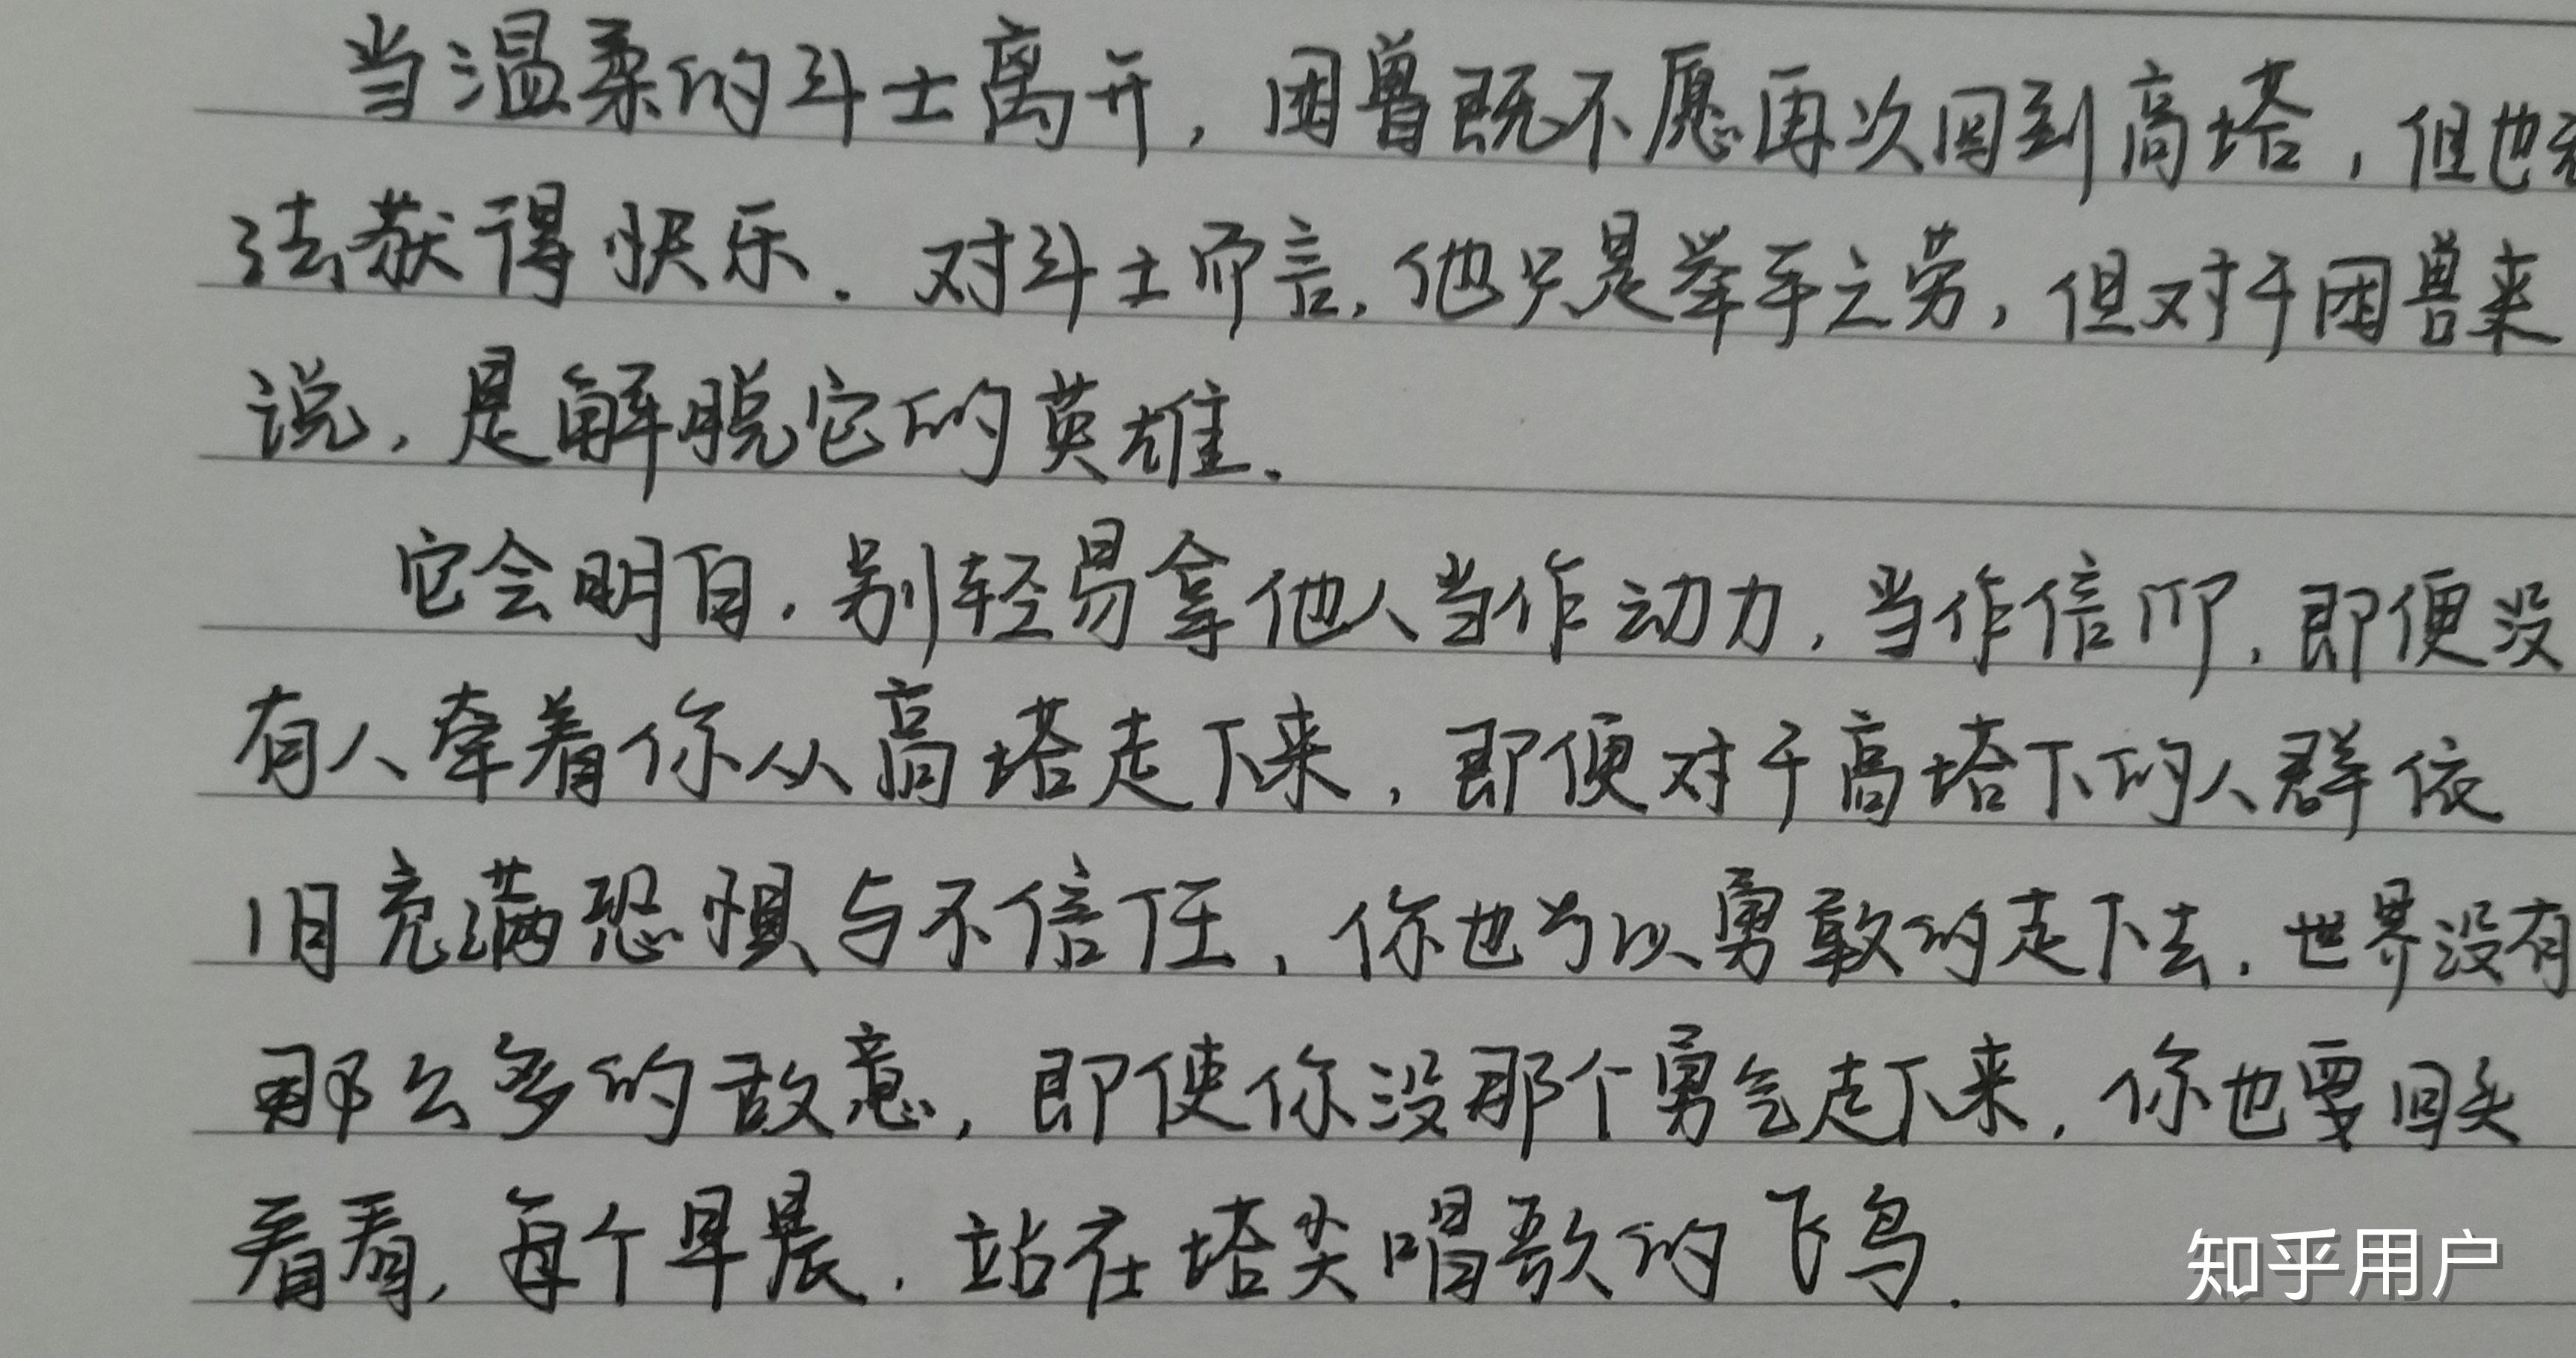 当温柔的斗士离开，困兽既不愿再次回到高塔，但也无
法获得快乐．对斗士而言，他只是举手之劳，但对于困兽来
说，是解脱它的英雄．
它会明白，别轻易拿他人当作动力，当作信仰，即便没
有人牵着你从高塔走下来，即便对于高塔下的人群依
旧充满恐惧与不信任，你也可以勇敢的走下去，世界没有
那么多的敌意，即使你没那个勇气走下来，你也要回头
看看，每个早晨，站在塔尖唱歌的飞鸟．
知乎用户